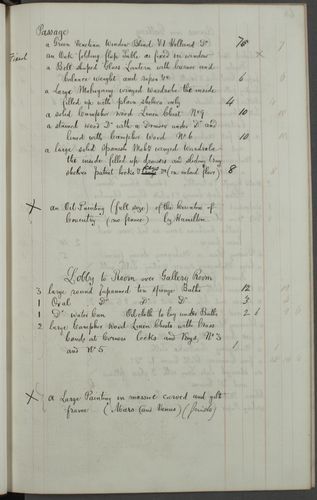 Passage
a Green Venetian Window Blind Vt Holland Do 7/6 7
an Oak folding flap Table as fixed in window x
Finish
a Bell shaped Glass Lantern with burner and
balance weight and ropes &c 6
a large Mahogany winged wardrobe the inside
filled up with plain shelves only 4 4
a solid Camphor wood Linen Chest No 9 10 10
a stained wood Do with a Drawer under Do and
lined with Camphor Wood No 6 10 10
a large solid Spanish Mahy winged Wardrobe
the inside filled up drawers and sliding tray
shelves patent locks & keys Do (on inland floor) 8 8
x an Oil Painting (full size) of the Countess of
Coventry (no frame) by Hamilton
Lobby to Room over Gallery Room
3 large round Japanned tin Sponge Baths 12
1 Oval Do Do Do 3
1 Do water Can Oil cloth to lay under Bath 2 6
2 large Camphor Wood Linen Chests with Brass
bands at Corners Locks and Keys No 3
and No 5 1
x a Large Painting in massive carved and gilt
frame (Mars and Venus)